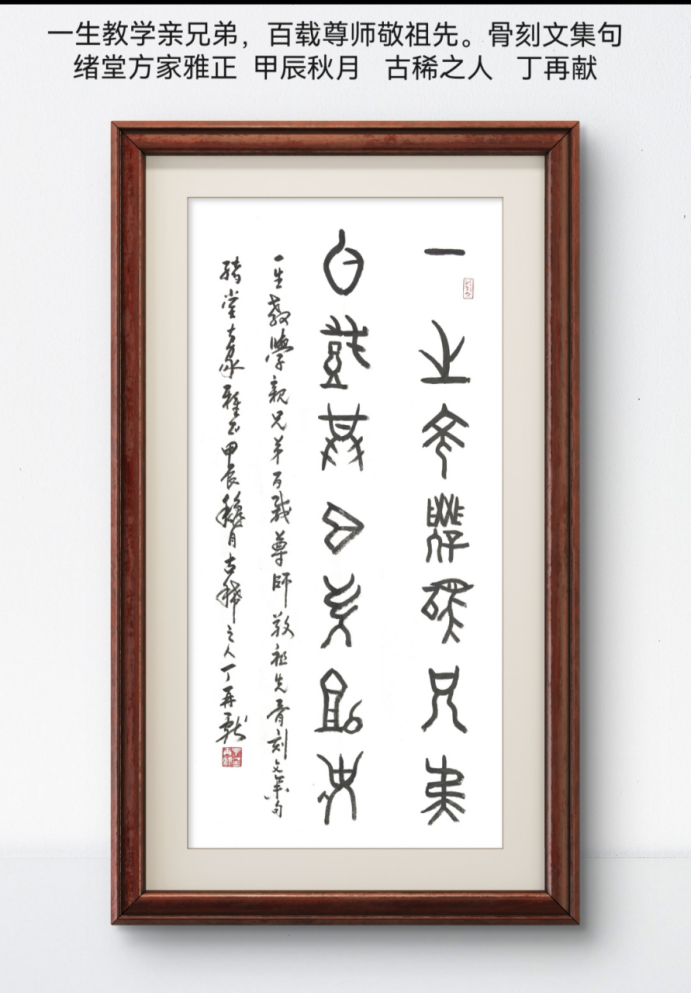 一生教学亲兄弟，百载尊师敬祖先。骨刻文集句
绪堂方家雅正 甲辰秋月 古稀之人 丁再献
一生教學親兄弟
百载尊師敬祖先
一生教學親兄弟百载尊師敬祖先骨刻文集句
绪堂方家雅正甲辰穐月古稀之人丁再献